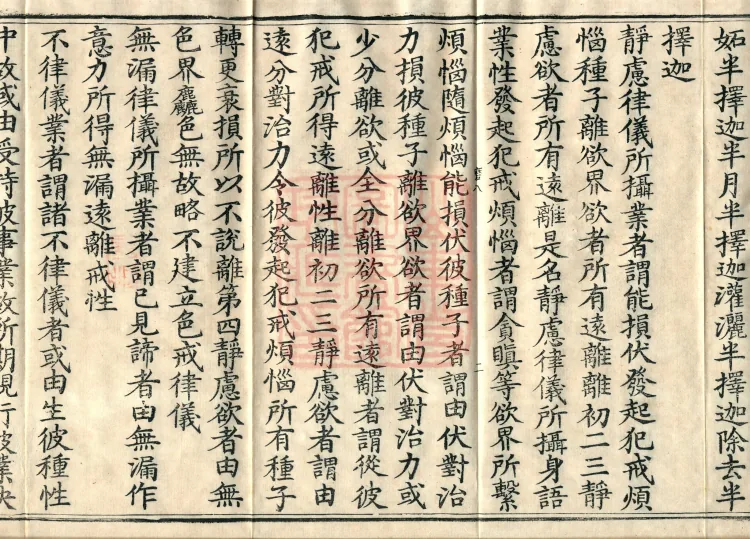 妬半擇迦半月半擇迦灌灑半擇迦除去半
擇迦
靜慮律儀所攝業者謂能損伏發起犯戒煩
惱種子離欲界欲者所有遠離離初二三靜
慮欲者所有遠離是名靜慮律儀所攝身語
業性發起犯戒煩惱者謂貪瞋等欲界所繫
煩惱隨煩惱能損伏彼種子者謂由伏對治
力損彼種子離欲界欲者謂由伏對治力或
少分離欲或全分離欲所有遠離者謂從彼
犯戒所得遠離性離初二三靜慮欲者謂由
遠分對治力令彼發起犯戒煩惱所有種子
轉更衰損所以不說離第四靜慮欲者由無
色界麤色無故略不建立色戒律儀
無漏律儀所攝業者謂已見諦者由無漏作
意力所得無漏遠離戒性
不律儀業者謂諸不律儀者或由生彼種性
中故或由受持彼事業故所期現行彼業決